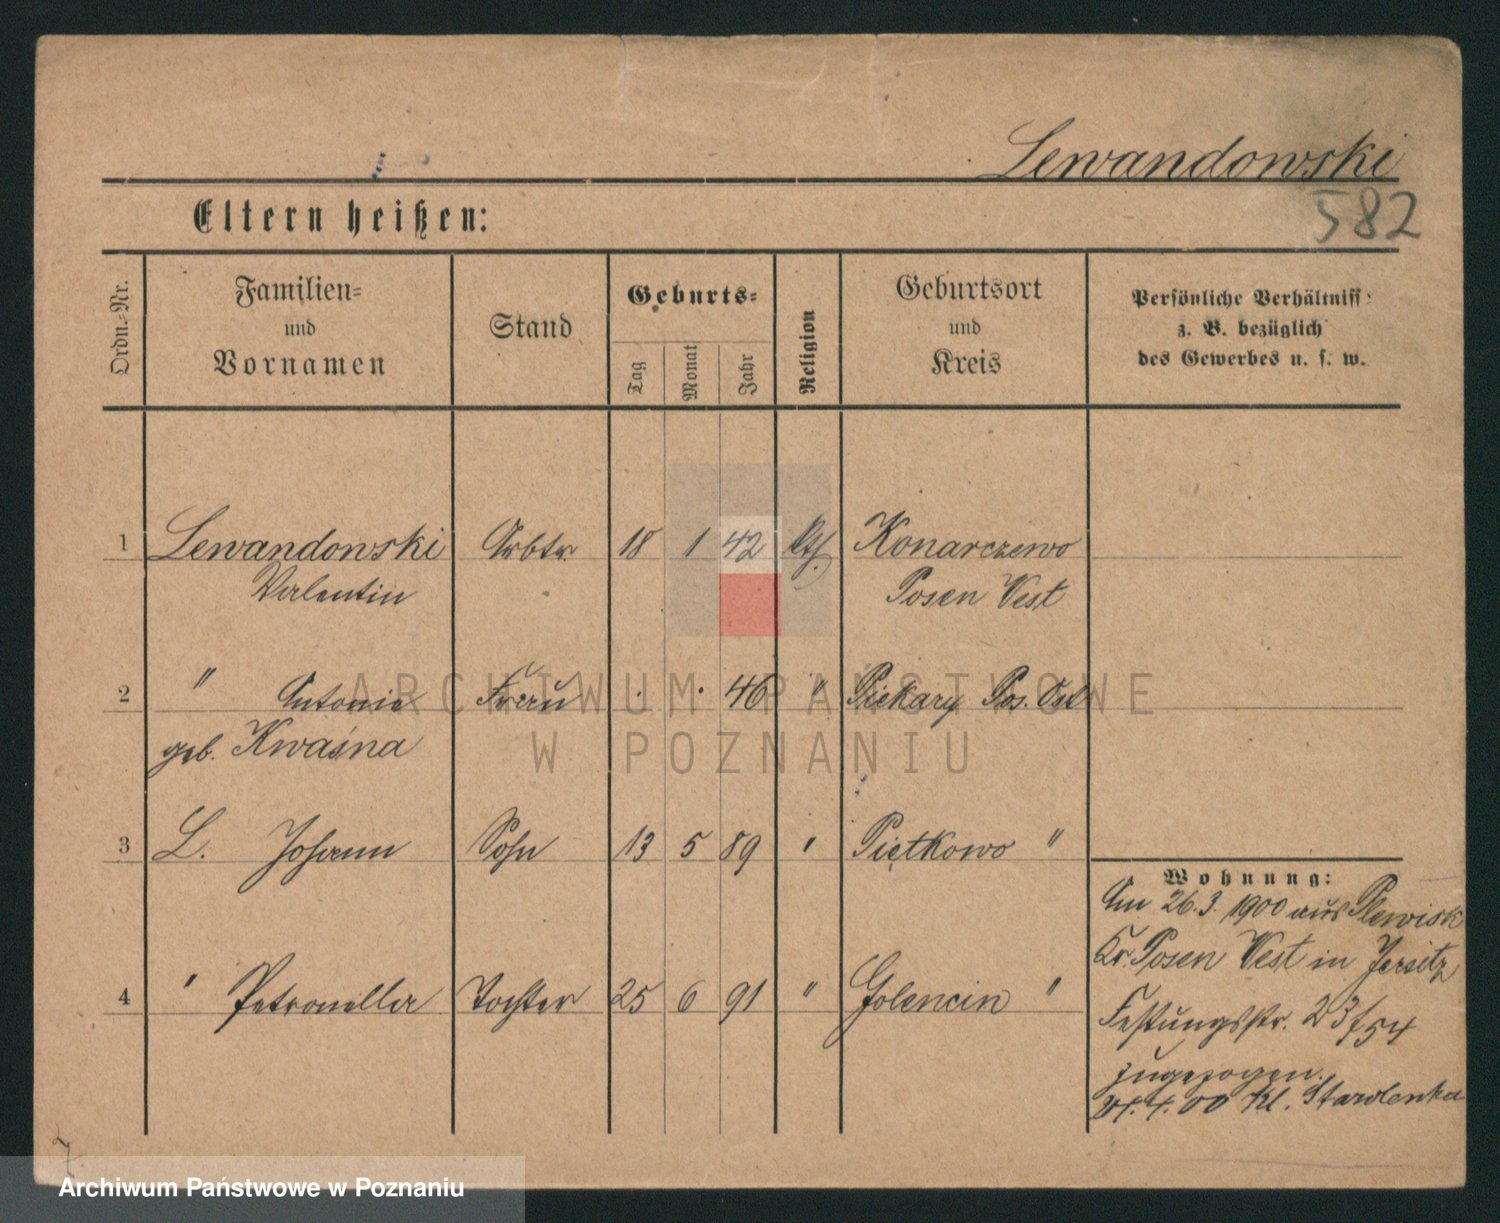 Lewandowski
582
Eltern heißen:
Ordn.-Nr.
Familien-
und
Vornamen
Stand
Geburts-
Tag
Monat
Jahr
Religion
Geburtsort
und
Kreis
Persönliche Verhältniss
z. B. bezüglich
des Gewerbes u. s. w.
1 Lewandowski Arbtr. 18 1 42 kth Konarczewo
Valentin Posen West
2 " Antonie Frau . . 46 " Piekary Pos. Ost
geb. Kwaśna
3 L. Johann Sohn 13 5 89 " Piętkowo "
Wohnung:
Am 26.3.1900 aus Plewisk
Kr. Posen West in Jersitz
4 " Petronella Tochter 25 6 91 " Golencin "
Festungsstr. 23/54
zugezogen.
4. 00 Kl. Starolenka
7.
ARCHIWUM PAŃSTWOWE
W POZNANIU
Archiwum Państwowe w Poznaniu